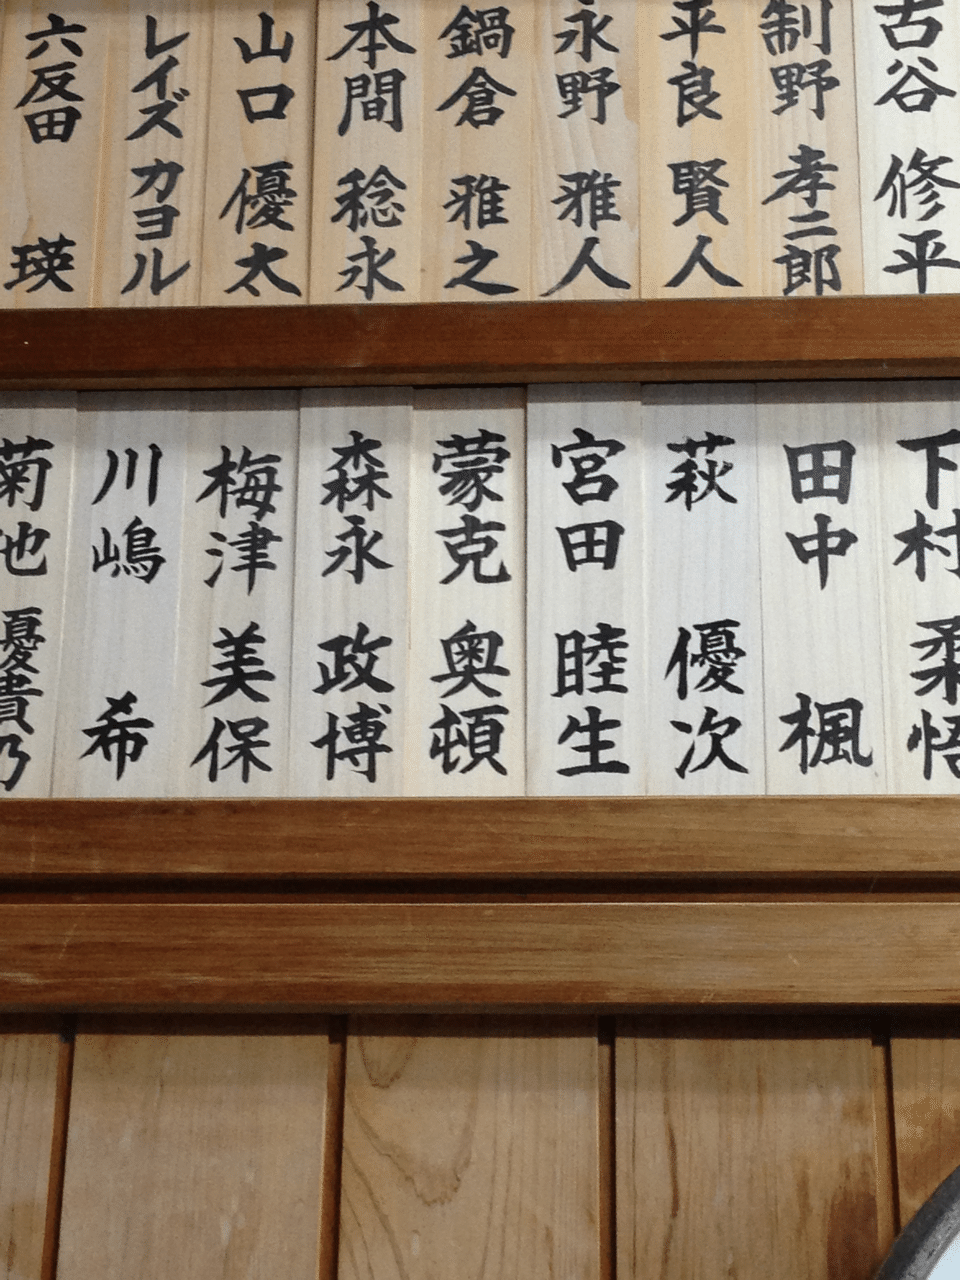 古谷 修平
制野 孝二郎
平良 賢人
永野 雅人
鍋倉 雅之
本間 稔永
山口 優太
レイズ カヨル
六反田 瑛
下村 柔悟
田中 楓
萩 優次
宮田 睦生
蒙克 奥頓
森永 政博
梅津 美保
川嶋 希
菊池 優貴乃